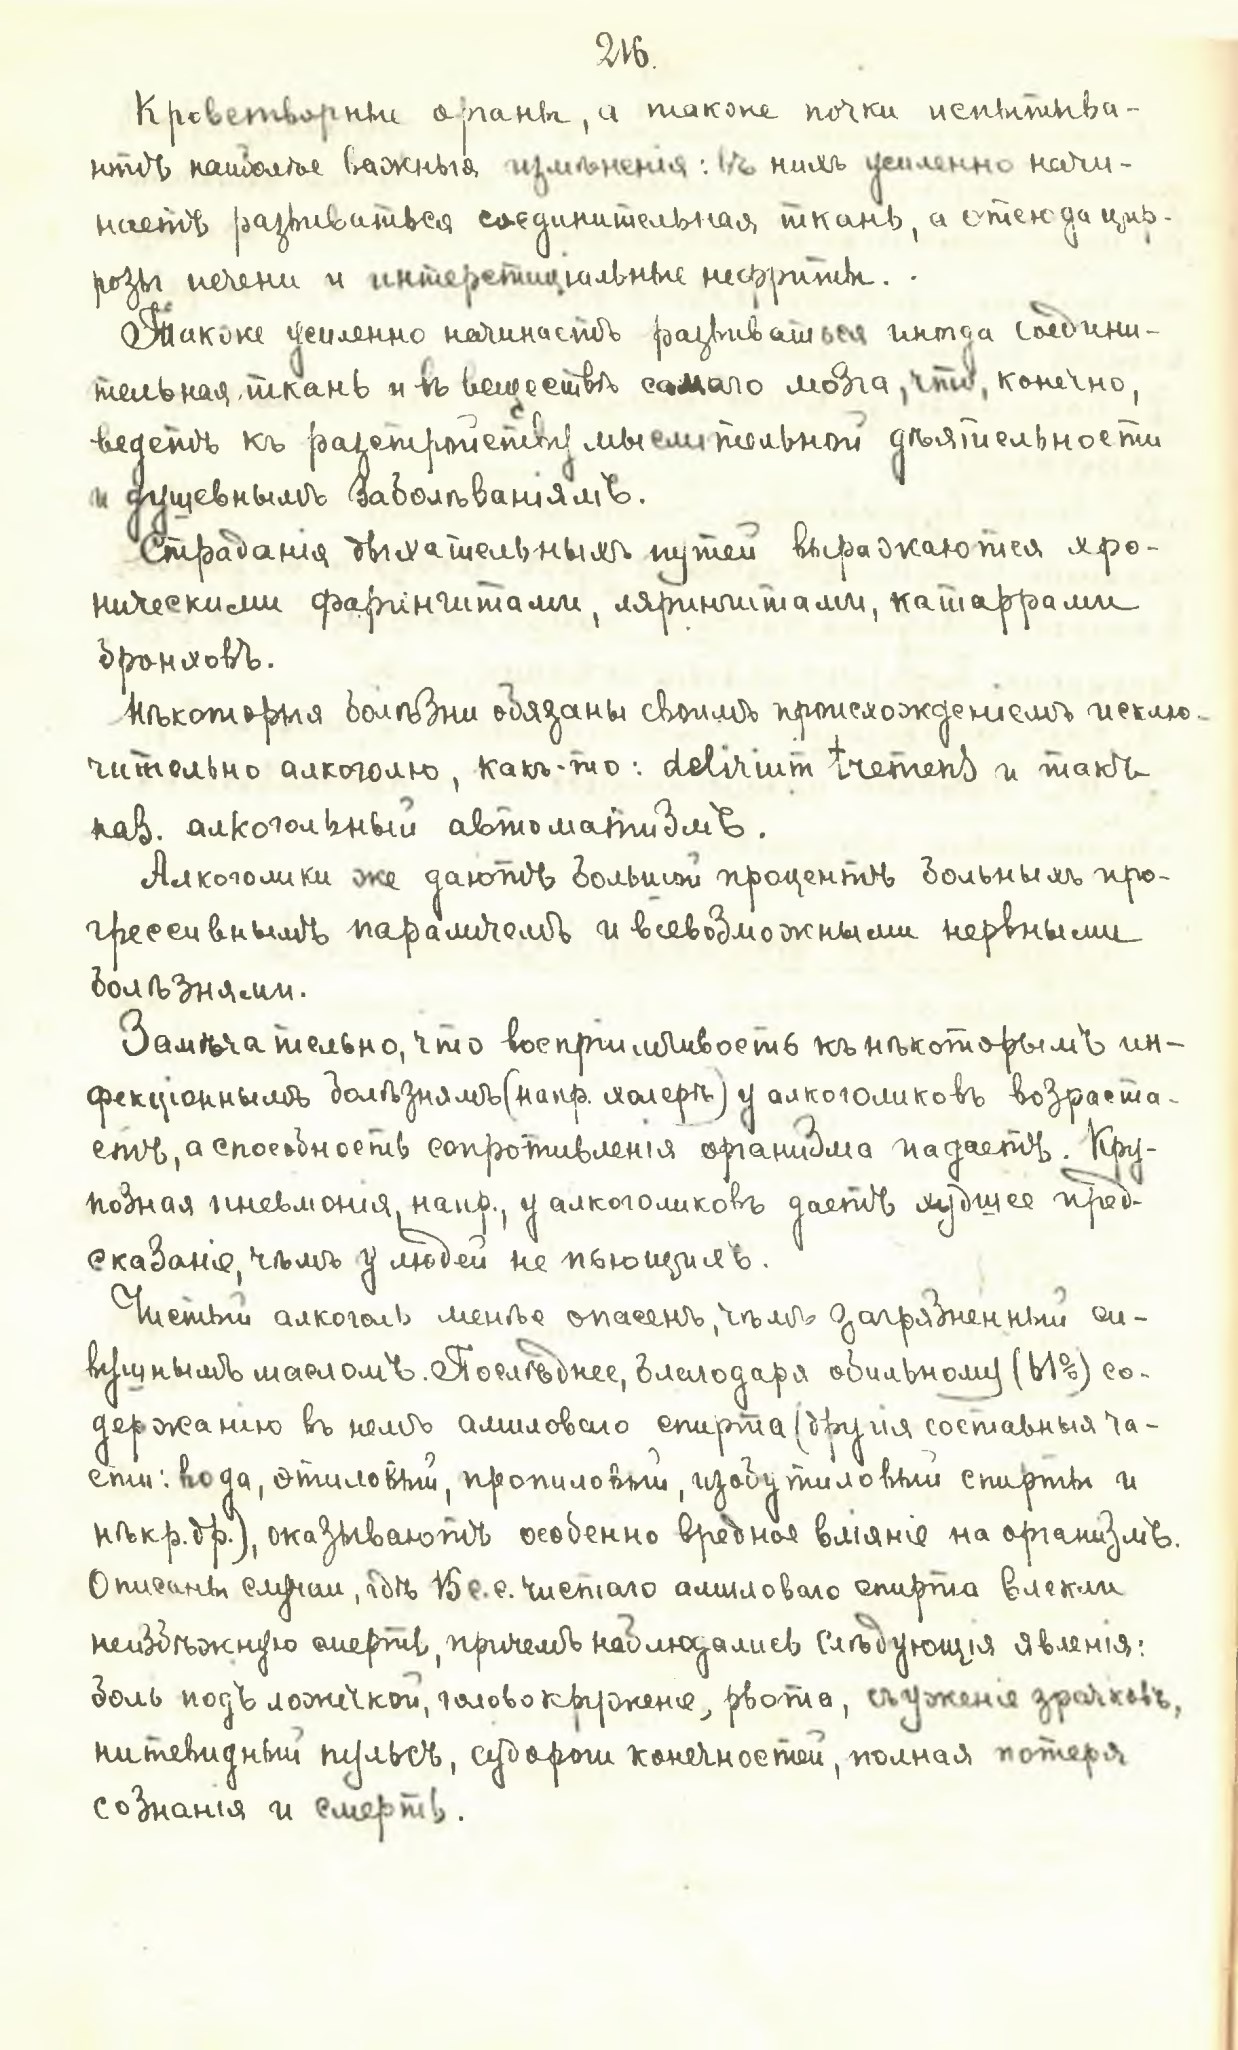 216.
Кроветворные органы, а также почки испытыва-
ютъ наиболѣе важныя измѣненія: въ нихъ усиленно начи-
наетъ развиваться соединительная ткань, а отсюда цир-
розы печени и интерстиціальные нефриты.
Также усиленно начинаетъ развиваться иногда соедини-
тельная ткань и въ веществѣ самаго мозга, что, конечно,
ведетъ къ разстройству мыслительной дѣятельности
и душевнымъ заболѣваніямъ.
Страданія дыхательныхъ путей выражаются хро-
ническими фарингитами, лярингитами, катаррами
бронховъ.
Нѣкоторыя болѣзни обязаны своимъ происхожденіемъ исклю-
чительно алкоголю, какъ-то: delirium tremens и такъ
наз. алкогольный автоматизмъ.
Алкоголики же даютъ большой процентъ больныхъ про-
грессивнымъ параличемъ и всевозможными нервными
болѣзнями.
Замѣчательно, что воспріимчивость къ нѣкоторымъ ин-
фекціоннымъ болѣзнямъ (напр. холерѣ) у алкоголиковъ возраста-
етъ, а способность сопротивленія организма падаетъ. Кру-
позная пневмонія, напр., у алкоголиковъ даетъ худшее пред-
сказаніе, чѣмъ у людей не пьющихъ.
Чистый алкоголь менѣе опасенъ, чѣмъ загрязненный си-
вушнымъ масломъ. Послѣднее, благодаря обильному (61%) со-
держанію въ немъ амиловаго спирта (другія составныя ча-
сти: вода, этиловый, пропиловый, изобутиловый спирты и
нѣкр. др.), оказываютъ особенно вредное вліяніе на организмъ.
Описаны случаи, гдѣ 15 с.с. чистаго амиловаго спирта влекли
неизбѣжную смерть, причемъ наблюдались слѣдующія явленія:
боль подъ ложечкой, головокруженіе, рвота, съуженіе зрачковъ,
нитевидный пульсъ, судороги конечностей, полная потеря
сознанія и смерть.